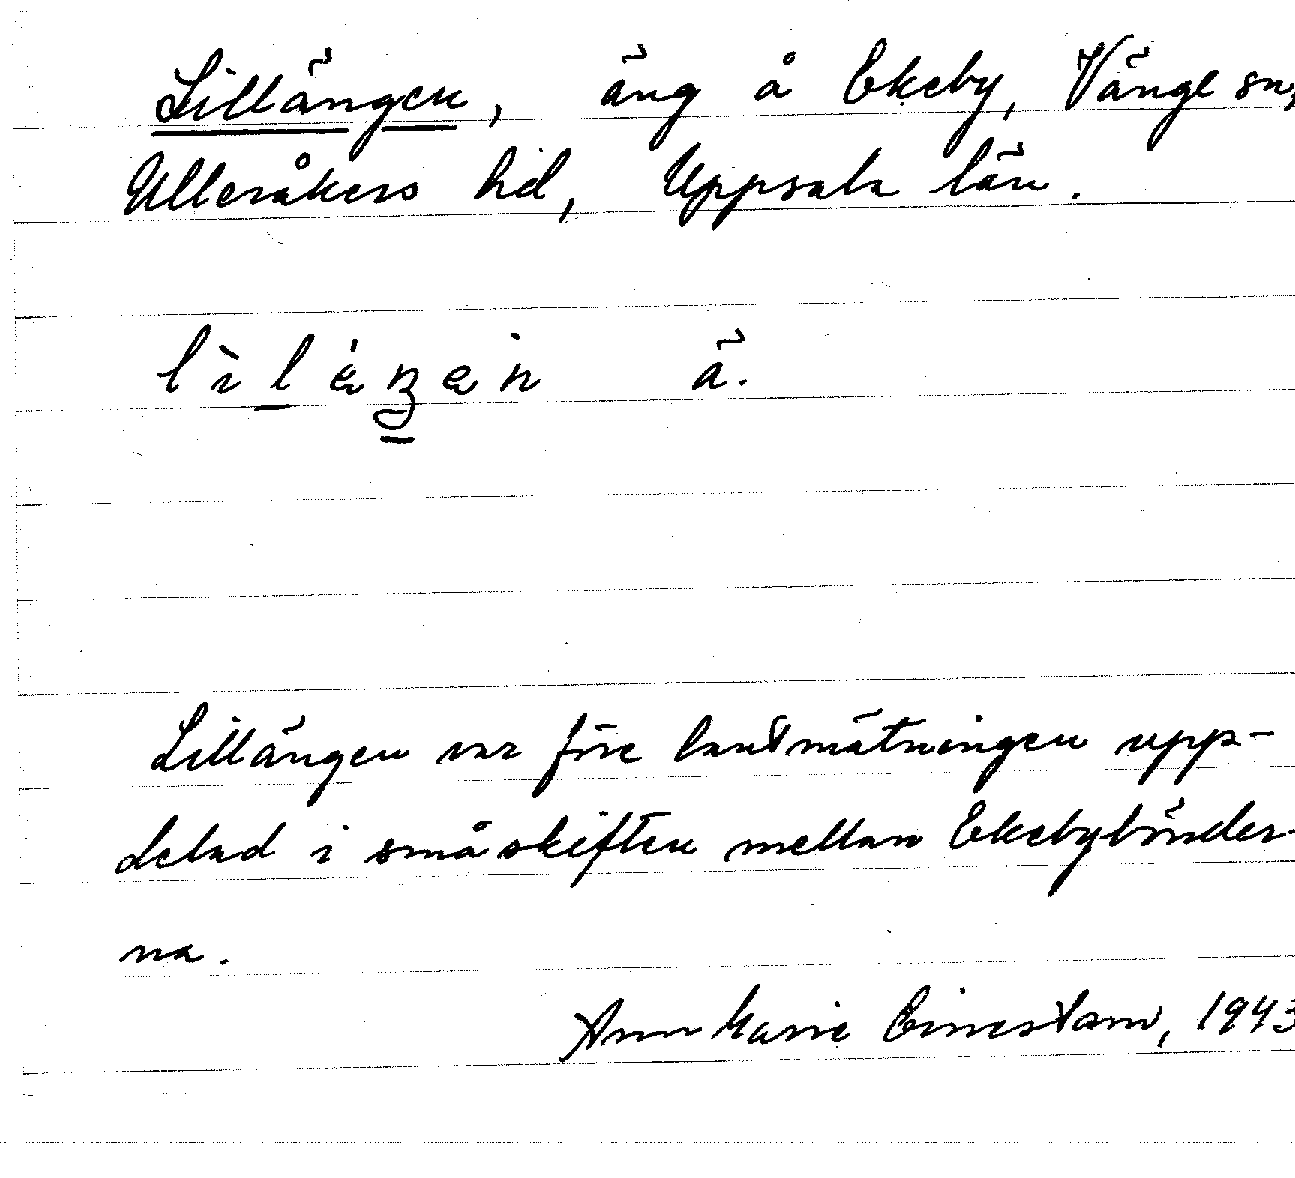 Lillängen, äng å Ekeby, Vänge sn,
Ulleråkers hd, Uppsala län.
lìlèŋen ä.
Lillängen var före landmätningen upp-
delad i småskiften mellan Ekebybönder-
na.
Ann Marie 1943